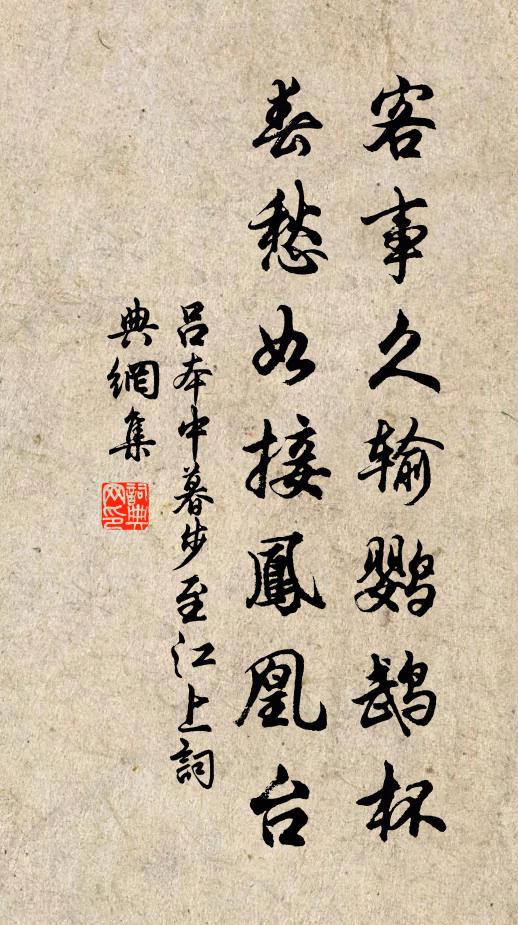 客事久输鹦鹉杯
春愁如接鳳凰台
吕本中暮步至江上詞
典網集
詞典网印